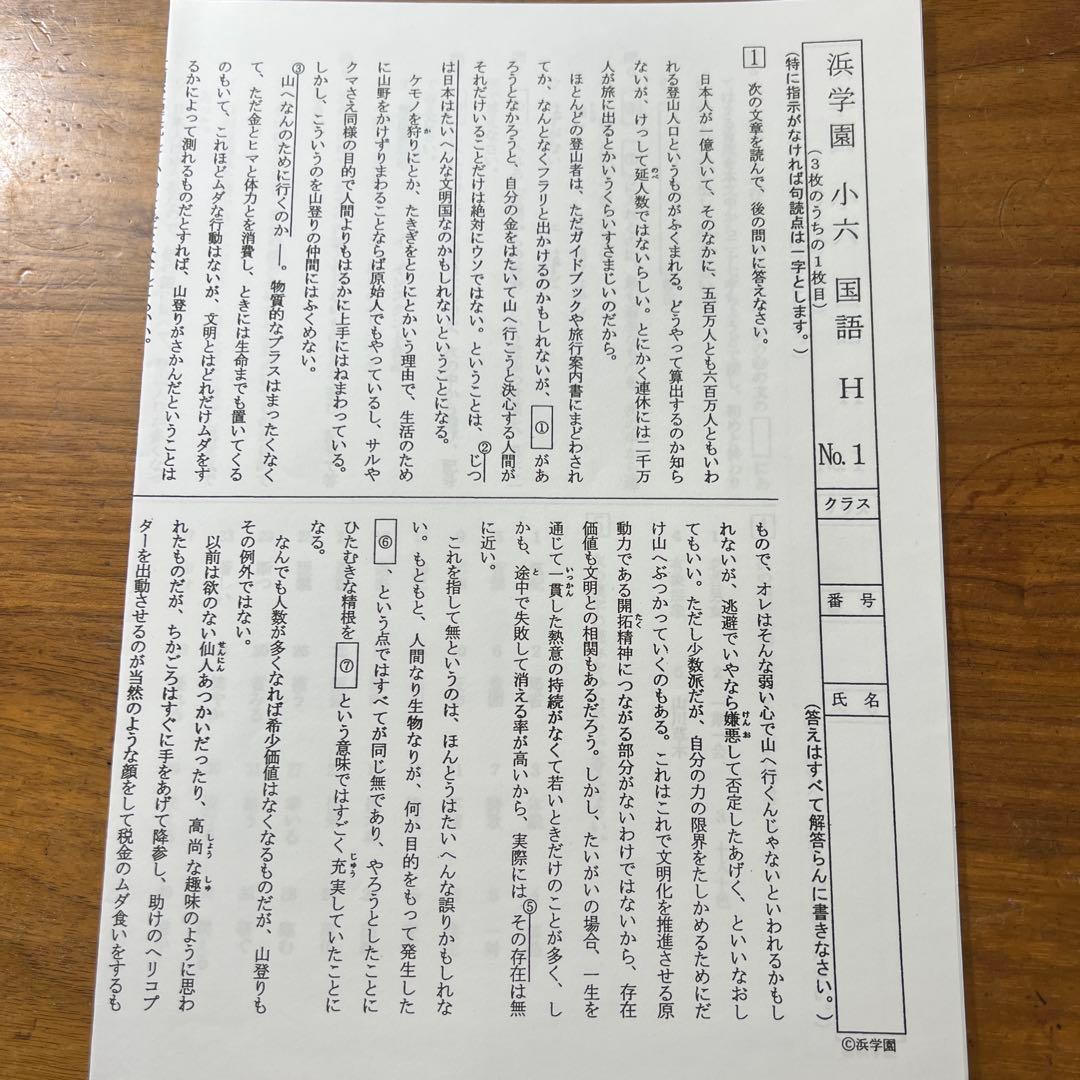 浜学園 小六 国語 H No.1
クラス
番号
氏名
(3枚のうちの1枚目)
(特に指示がなければ句読点は一字とします。)
(答えはすべて解答らんに書きなさい。)
©浜学園
1 次の文章を読んで、後の問いに答えなさい。
日本人が一億人いて、そのなかに、五百万人とも六百万人ともいわ
れる登山人口というものがふくまれる。どうやって算出するのか知ら
ないが、けっして延人数ではないらしい。とにかく連休には二千万
人が旅に出るとかいうくらいすさまじいのだから。
ほとんどの登山者は、ただガイドブックや旅行案内書にまどわされ
てか、なんとなくフラリと出かけるのかもしれないが、①があ
ろうとなかろうと、自分の金をはたいて山へ行こうと決心する人間が
それだけいることだけは絶対にウソではない。ということは、②じつ
は日本はたいへんな文明国なのかもしれないということになる。
ケモノを狩りにとか、たきぎをとりにとかいう理由で、生活のため
に山野をかけずりまわることならば原始人でもやっているし、サルや
クマさえ同様の目的で人間よりもはるかに上手にはねまわっている。
しかし、こういうのを山登りの仲間にはふくめない。
③山へなんのために行くのか――。物質的なプラスはまったくなく
て、ただ金とヒマと体力とを消費し、ときには生命までも置いてくる
のもいて、これほどムダな行動はないが、文明とはどれだけムダをす
るかによって測れるものだとすれば、山登りがさかんだということは
もので、オレはそんな弱い心で山へ行くんじゃないといわれるかもし
れないが、逃避でいやなら嫌悪して否定したあげく、といいなおし
てもいい。ただし少数派だが、自分の力の限界をたしかめるためにだ
け山へぶつかっていくのもある。これはこれで文明化を推進させる原
動力である開拓精神につながる部分がないわけではないから、存在
価値も文明との相関もあるだろう。しかし、たいがいの場合、一生を
通じて一貫した熱意の持続がなくて若いときだけのことが多く、し
かも、途中で失敗して消える率が高いから、実際には⑤その存在は無
に近い。
これを指して無というのは、ほんとうはたいへんな誤りかもしれな
い。もともと、人間なり生物なりが、何か目的をもって発生した
⑥、という点ではすべてが同じ無であり、やろうとしたことに
ひたむきな精根を⑦という意味ではすごく充実していたことに
なる。
なんでも人数が多くなれば希少価値はなくなるものだが、山登りも
その例外ではない。
以前は欲のない仙人あつかいだったり、高尚な趣味のように思わ
れたものだが、ちかごろはすぐに手をあげて降参し、助けのヘリコプ
ターを出動させるのが当然のような顔をして税金のムダ食いをするも